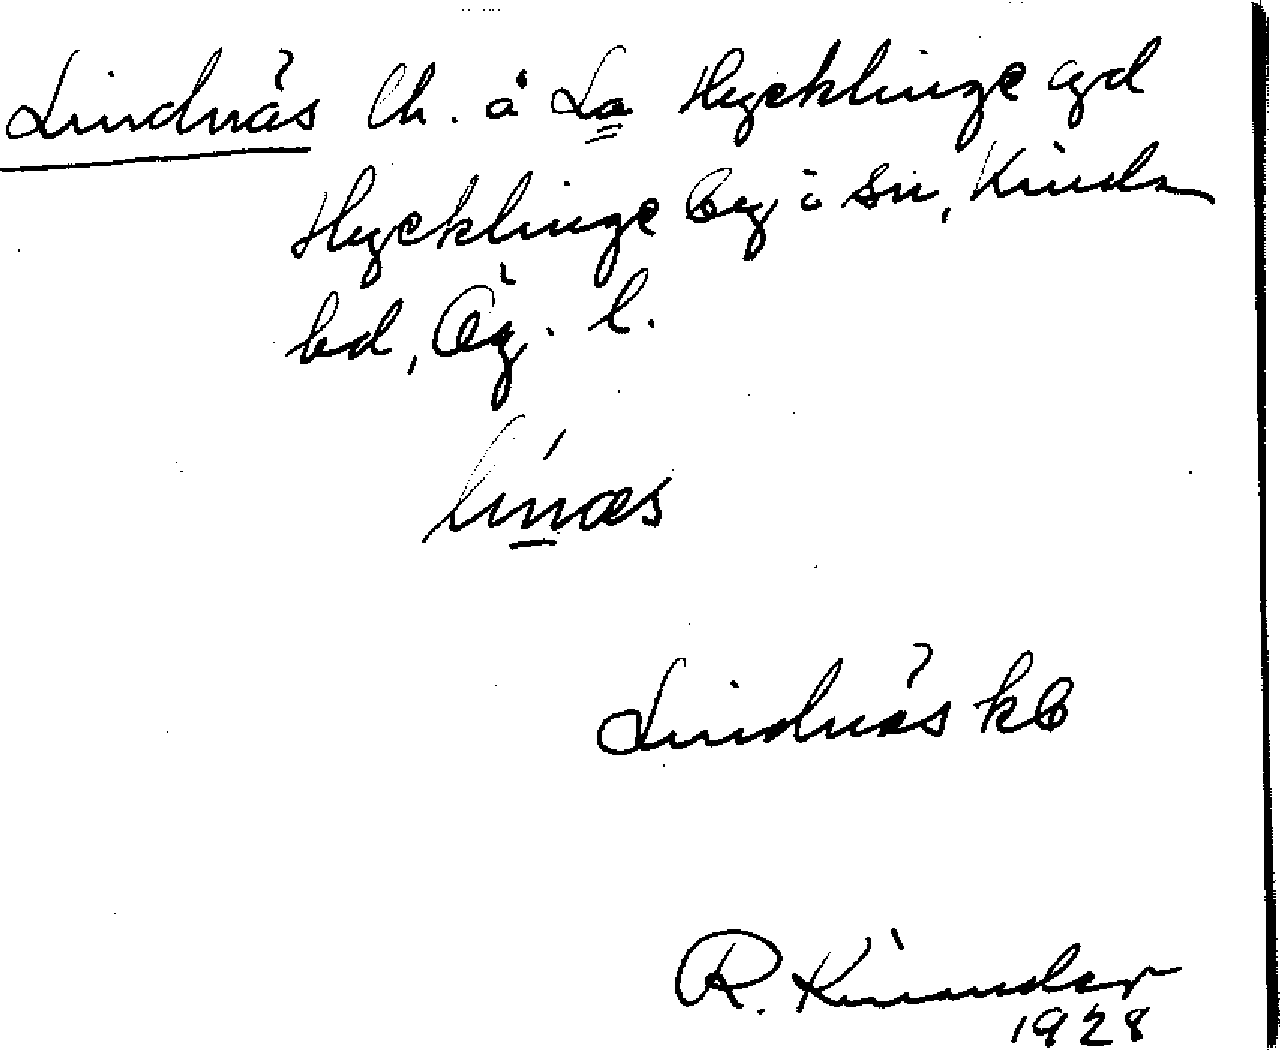 Lindnäs lh. å La Hycklinge gd
Hycklinge by i sn, Kinda
hd, Ög. l.
línæs
Lindnäs kb
R. Kinander
1928